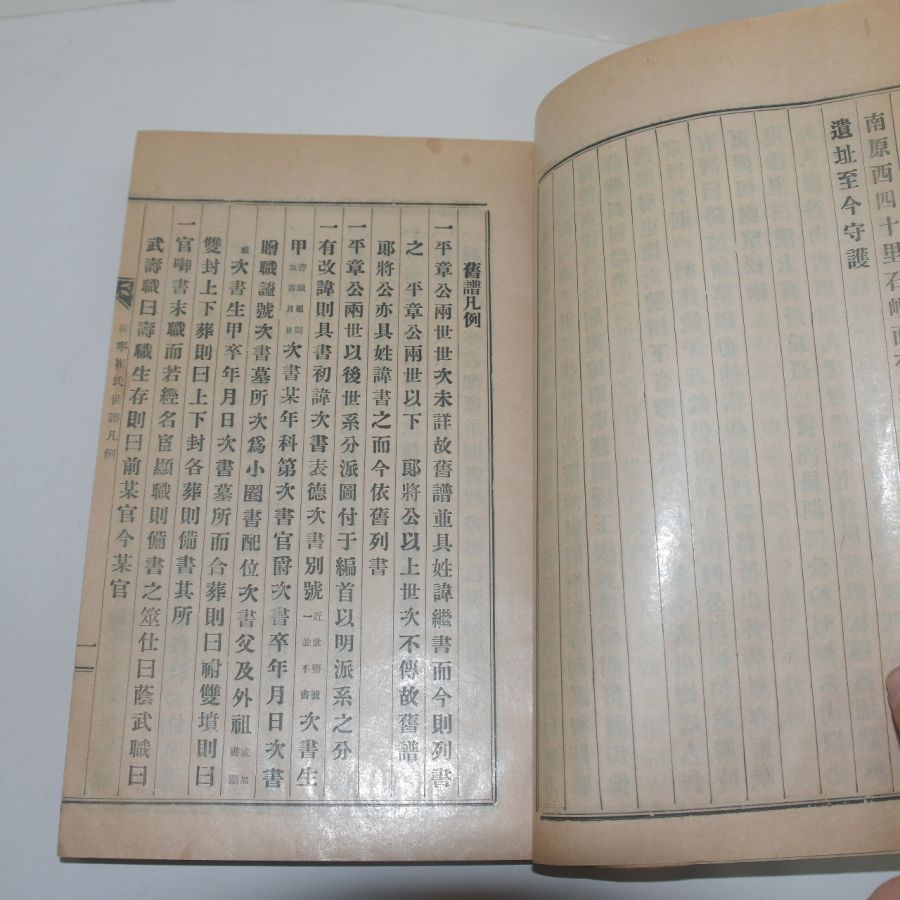 南原西四十里石
遺址至今守護
舊譜凡例
一平章公兩世世次未詳故舊譜並具姓諱繼書而今則列書
之 平章公兩世以下 郞將公以上世次不傳故舊譜
郞將公亦具姓諱書之而今依舊列書
一平章公兩世以後世系分派圖付于編首以明派系之分
一有改諱則具書初諱次書表德次書別號近世齋號一並不書次書生
甲 次書某年科第次書官爵次書卒年月日次書
贈職諡號次書墓所次爲小圈書配位次書父及外祖或加書顯
祖次書生甲卒年月日次書墓所而合葬則曰祔雙墳則曰
雙封上下葬則曰上下封各葬則備書其所
一官啣書末職而若經名宦顯職則備書之筮仕曰蔭武職曰
武壽職曰壽職生存則曰前某官今某官
寧崔氏世譜凡例
一